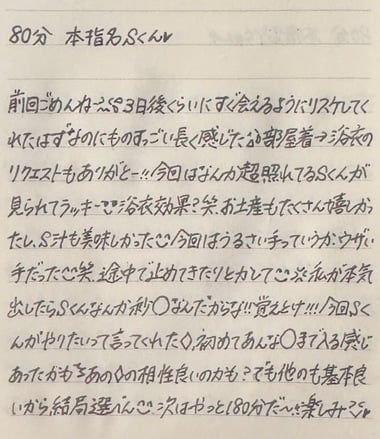 80分 本指名Sくん♥
前回ごめんね 3日後くらいにすぐ会えるようにリスケしてく
れたはずなのにものすっごい長く感じた 部屋着→浴衣の
リクエストもありがとー!!今回はなんか超照れてるSくんが
見られてラッキー 浴衣効果?笑 お土産もたくさん嬉しかっ
たし、S汁も美味しかった 今回はうるさい手っていうかウザい
手だった 笑 途中で止めてきたりとかしてこ 私が本気
出したらSくんなんか秒○なんだからな!!覚えとけ!!!今回Sく
んがやりたいって言ってくれた◇、初めてあんな○まで入る感じ
あったかも あの◇の相性良いのかも?でも他のも基本良
いから、結局選べん 次はやっと180分だ〜 楽しみ♥